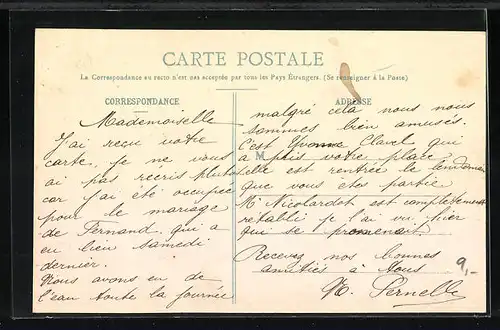 CARTE POSTALE
La Correspondance au recto n'est pas acceptée par tous les Pays Étrangers. (Se renseigner à la Poste)
CORRESPONDANCE
Mademoiselle
J'ai reçu votre
carte, je ne vous
ai pas recris plutot
car j'ai été occupée
pour le mariage
de Fernand, qui a
eu lieu samedi
dernier.
Nous avons eu de
l'eau toute la journée
ADRESSE
malgré cela nous nous
sommes bien amusés.
C'est Yvonne Clavel qui
a M pris votre place
elle est rentrée le lendemain
que vous êtes partie
Mr Nicolardot est complètement
retabli je l'ai vu hier
qui se promenait.
Recevez nos bonnes
amitiés à Tous
9,-